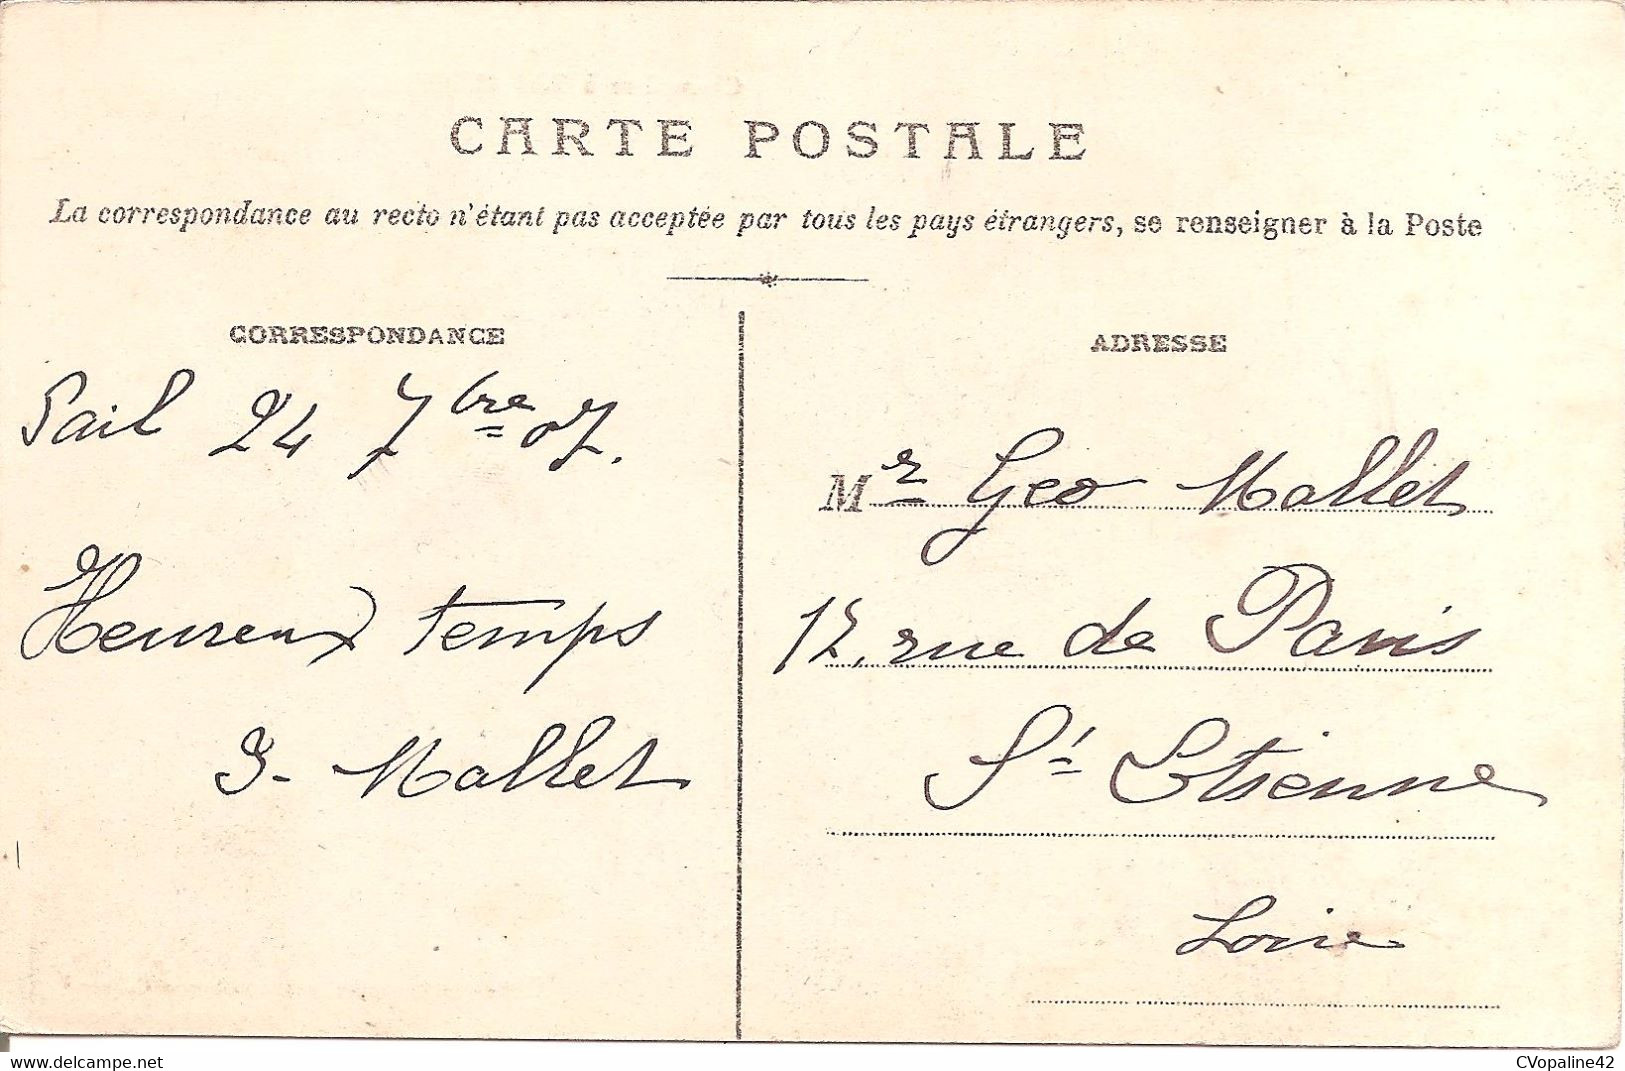 CARTE POSTALE
La correspondance au recto n'étant pas acceptée par tous les pays étrangers, se renseigner à la Poste
CORRESPONDANCE
Sail 24 7bre 07.
Heureux temps
J. Mallet
ADRESSE
Mr Geo Mallet
12, rue de Paris
St Etienne
Loire
www.delcampe.net
CVopaline42